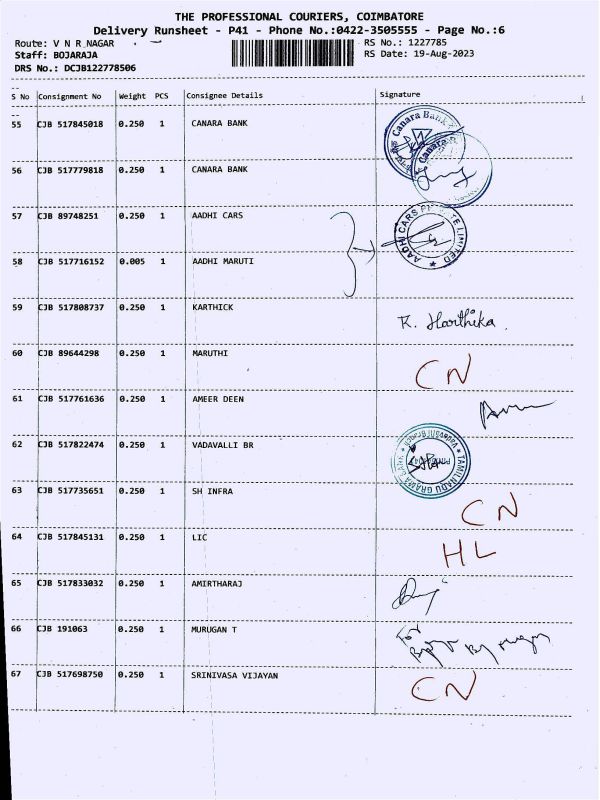 THE PROFESSIONAL COURIERS, COIMBATORE
Delivery Runsheet - P41 - Phone No.:0422-3505555 - Page No.:6
Route: V N R NAGAR
RS No.: 1227785
Staff: BOJARAJA
RS Date: 19-Aug-2023
DRS No.: DCJB122778506
S No Consignment No Weight PCS Consignee Details Signature
55 CJB 517845018 0.250 1 CANARA BANK
Canara Bank
56 CJB 517779818 0.250 1 CANARA BANK
Canara
57 CJB 89748251 0.250 1 AADHI CARS
AADHI CARS PRIVATE LIMITED
58 CJB 517716152 0.005 1 AADHI MARUTI
59 CJB 517808737 0.250 1 KARTHICK
K. Harthika.
60 CJB 89644298 0.250 1 MARUTHI
CN
61 CJB 517761636 0.250 1 AMEER DEEN
62 CJB 517822474 0.250 1 VADAVALLI BR
TAMILNADU GRAMA BANK
63 CJB 517735651 0.250 1 SH INFRA
CN
64 CJB 517845131 0.250 1 LIC
HL
65 CJB 517833032 0.250 1 AMIRTHARAJ
66 CJB 191063 0.250 1 MURUGAN T
For
67 CJB 517698750 0.250 1 SRINIVASA VIJAYAN
CN